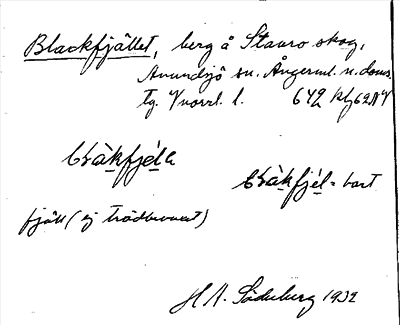 Blackfjället, berg å Stavro skog,
Anundsjö sn. Ångerml. n. doms.
tg. Vnorrl. l. 642 Kbj62AV
bɽàkfjéɫa
bɽàkfjéɫ = bart
fjäll (ej trädbevuxet)
H A. Söderberg 1932